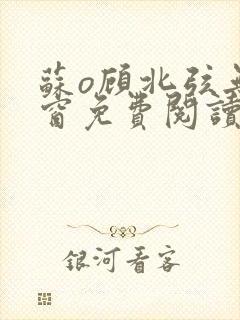 蘇o顧北弦無
窗免費閱讀
銀河看客